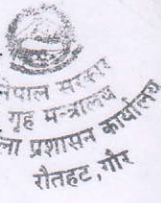 नेपाल सरकार
गृह मन्त्रालय
ला प्रशासन कार्यालय
रौतहट, गौर